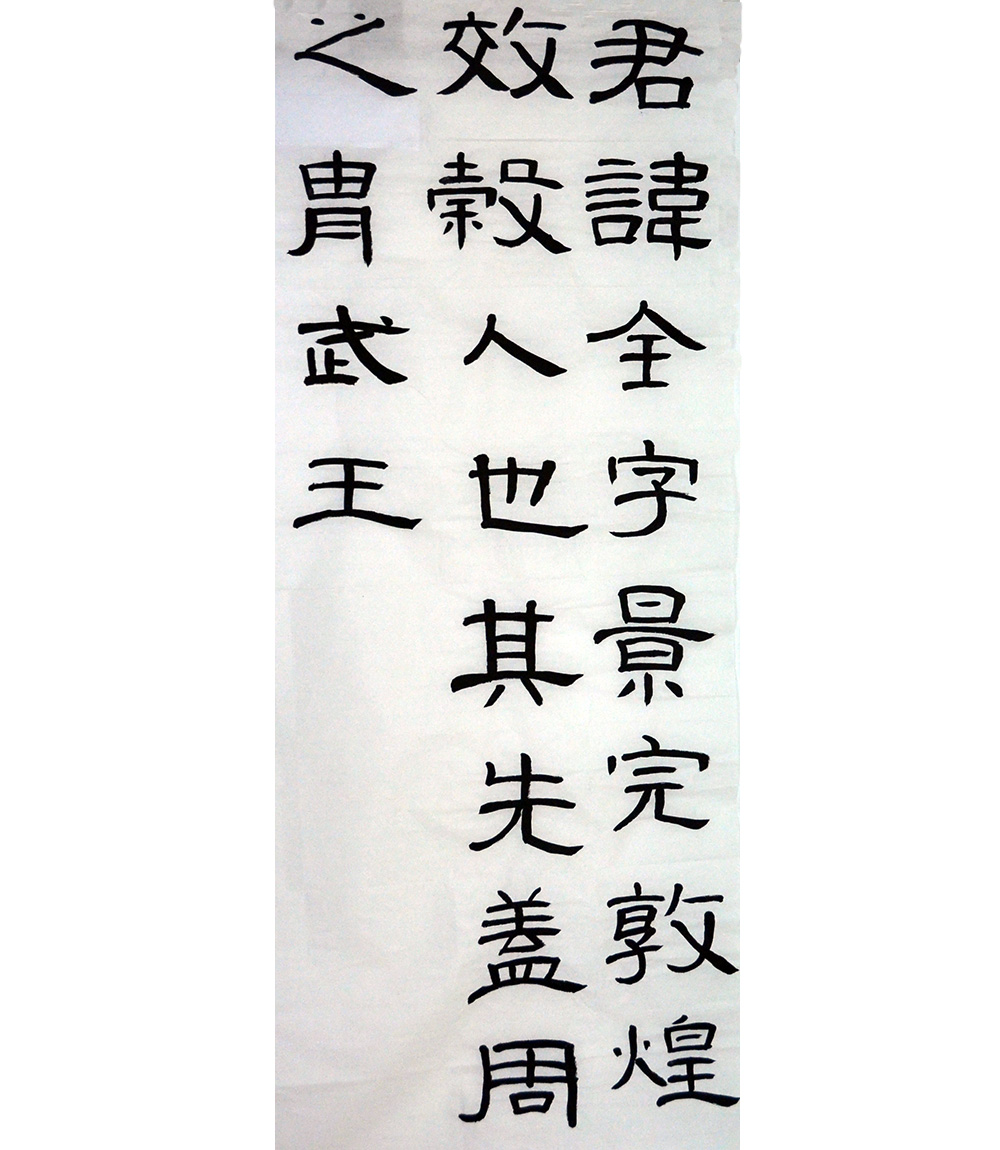 君諱全字景完敦煌
效穀人也其先盖周
之胄武王